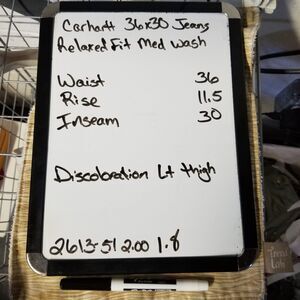 Carhartt 36x30 Jeans
Relaxed Fit Med Wash
Waist 36
Rise 11.5
Inseam 30
Discoloration Lt thigh
2613-51 2.00 1.8